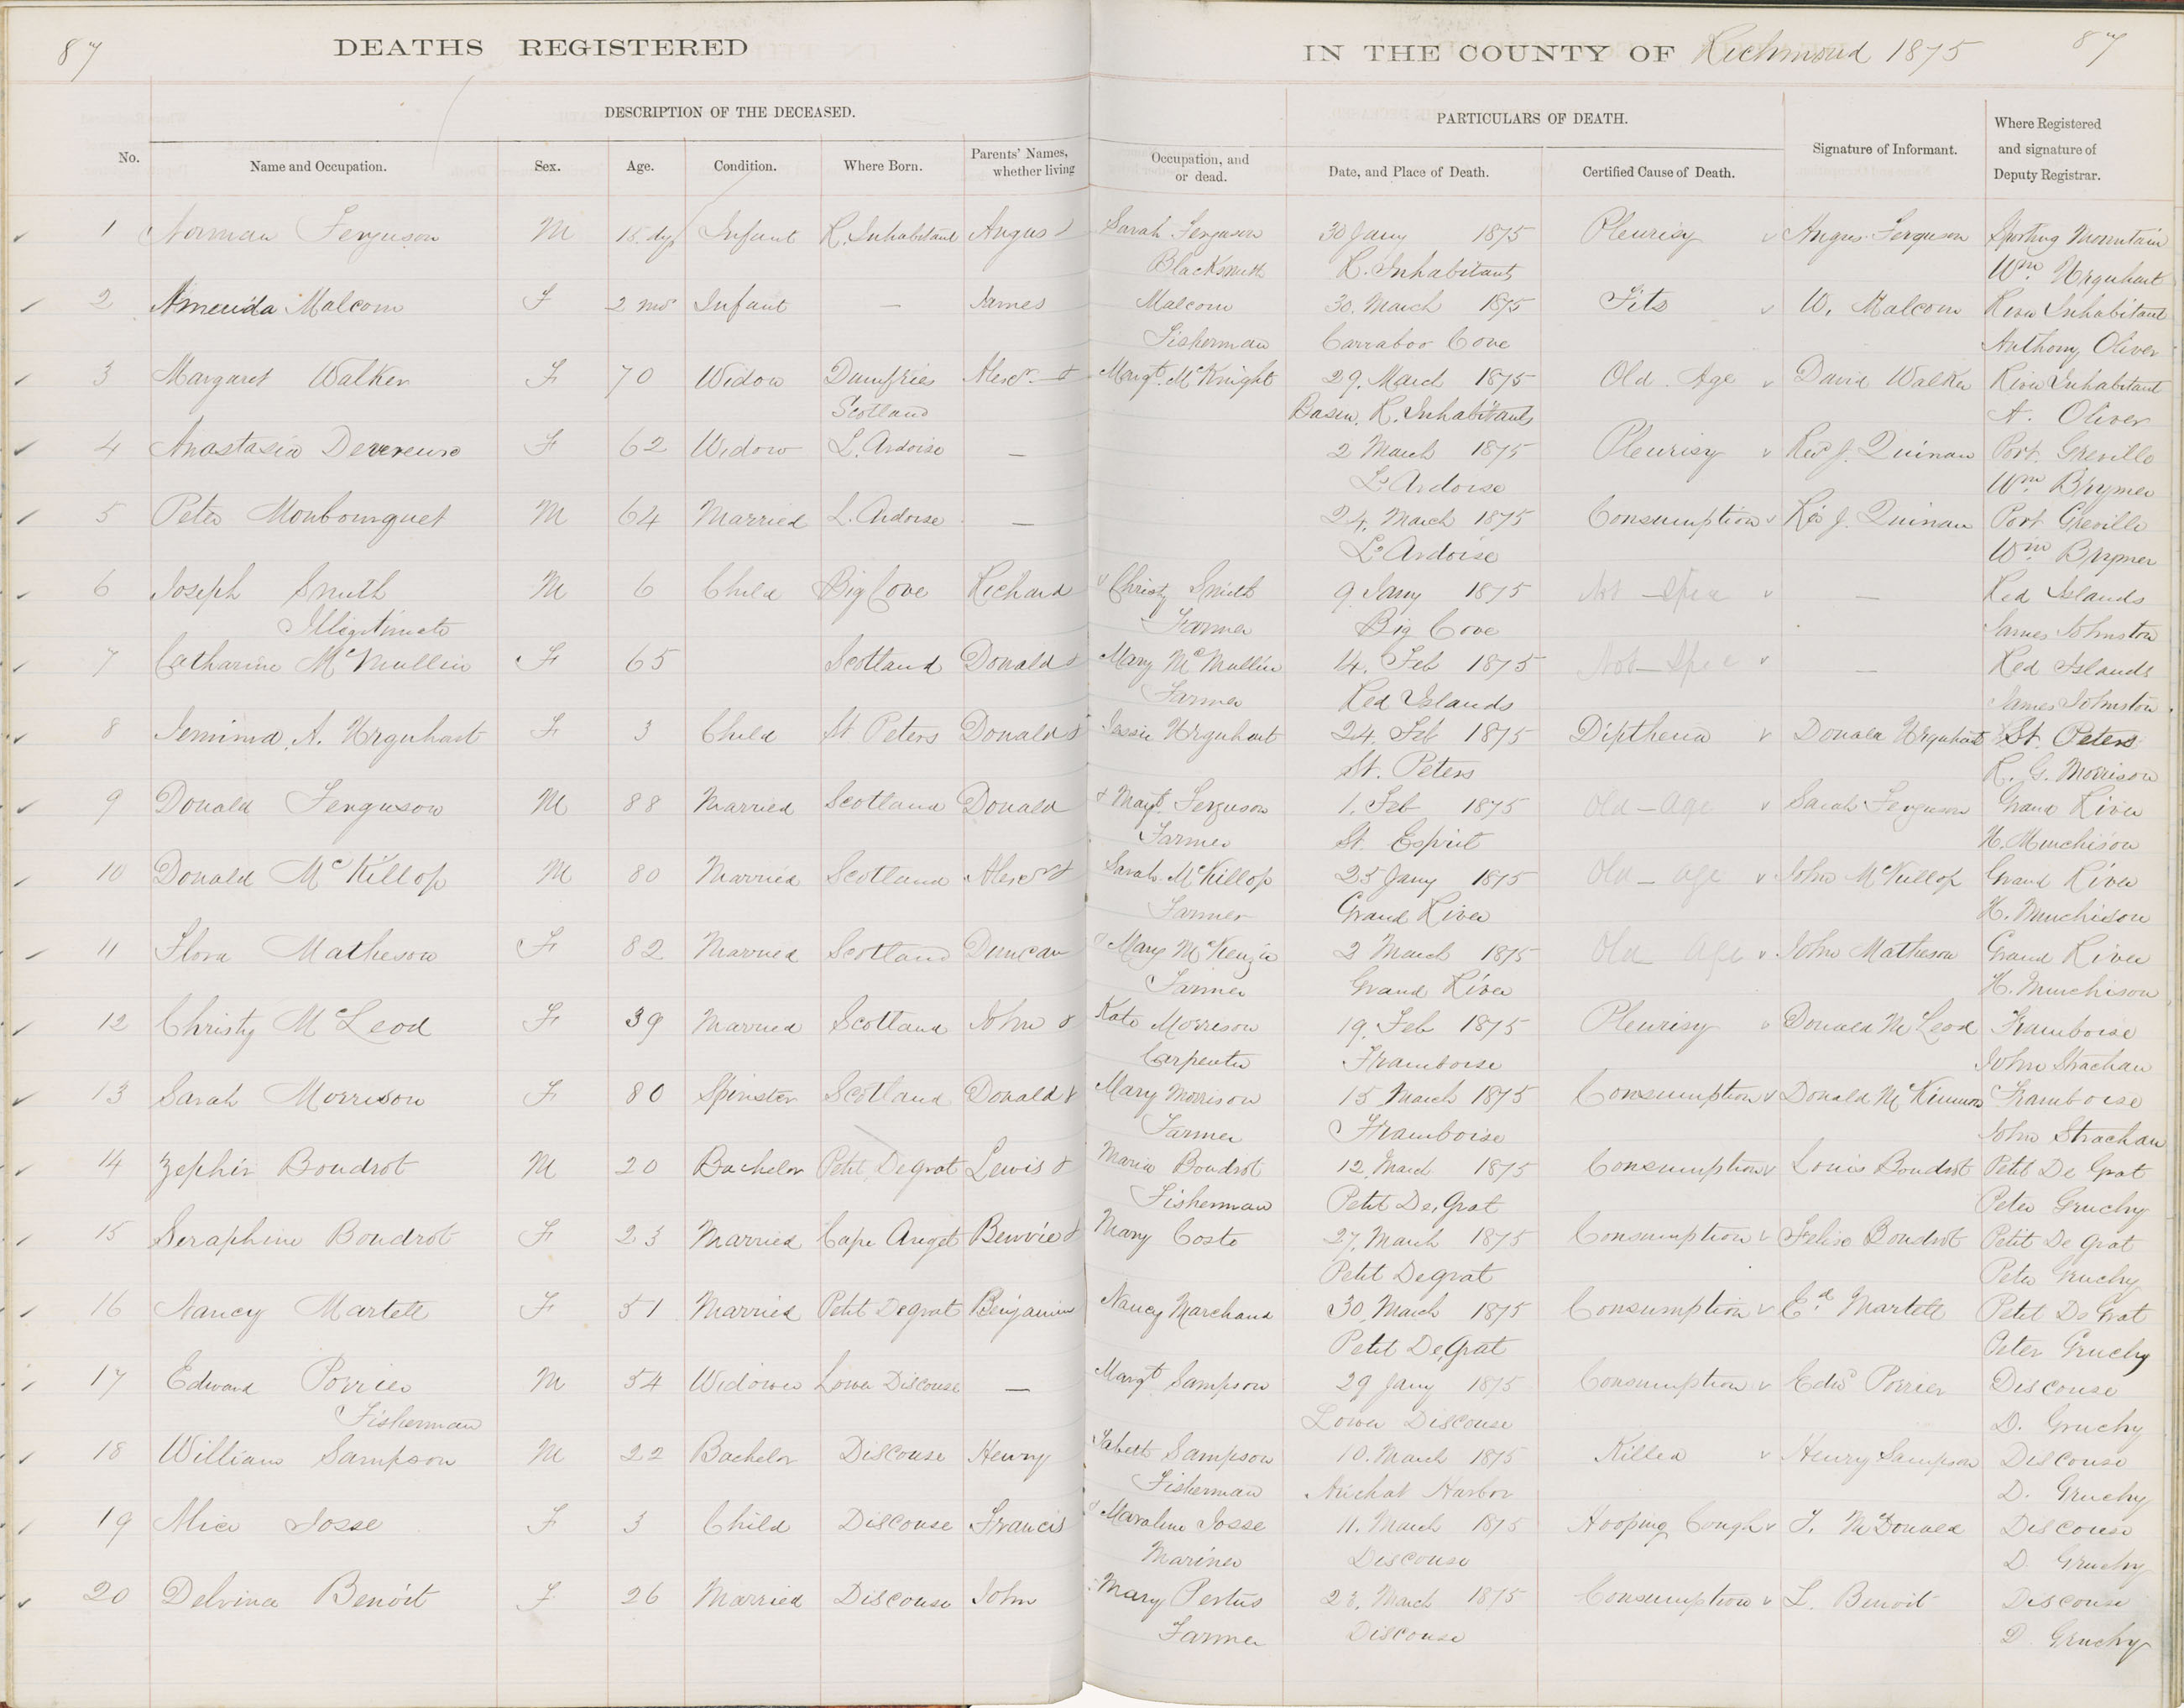 87 DEATHS REGISTERED IN THE COUNTY OF Richmond 1875 87
DESCRIPTION OF THE DECEASED. PARTICULARS OF DEATH.
No. Name and Occupation. Sex. Age. Condition. Where Born. Parents' Names, whether living Occupation, and or dead. Date, and Place of Death. Certified Cause of Death. Signature of Informant. Where Registered and signature of Deputy Registrar.
1 Norman Ferguson M 15 dys Infant R. Inhabitant Angus & Sarah Ferguson 30 Jany 1875 Pleurisy Angus Ferguson Sporting Mountain
Blacksmith R. Inhabitants Wm Urquhart
2 Amenida Malcom F 2 mos Infant — James Malcom 30. March 1875 Fits W. Malcom River Inhabitant
Fisherman Carraboo Cove Anthony Oliver
3 Margaret Walker F 70 Widow Dumfries Alexr. & Margt. McKnight 29. March 1875 Old Age David Walker River Inhabitant
Scotland Basin, R. Inhabitants A. Oliver
4 Anastasia Devereux F 62 Widow L. Ardoise — 2 March 1875 Pleurisy Revd J. Quinan Port Greville
L'Ardoise Wm Brymer
5 Peter Monbourquet M 64 Married L. Ardoise — 24. March 1875 Consumption Revd J. Quinan Port Greville
L'Ardoise Wm Brymer
6 Joseph Smith M 6 Child Big Cove Richard & Christy Smith 9 Jany 1875 Not Spec — Red Islands
Illigitimate Farmer Big Cove James Johnston
7 Catharine McMullin F 65 Scotland Donald & Mary McMullin 14. Feb 1875 Not Spec — Red Islands
Farmer Red Islands James Johnston
8 Jemima A. Urquhart F 3 Child St Peters Donald & Jessie Urquhart 24. Feb 1875 Diptheria Donald Urquhart St. Peters
St. Peters R. G. Morrison
9 Donald Ferguson M 88 Married Scotland Donald & Margt. Ferguson 1. Feb 1875 Old-Age Sarah Ferguson Grand River
Farmer St. Esprit H. Murchison
10 Donald McKillop M 80 Married Scotland Alexr & Sarah McKillop 25 Jany 1875 Old - Age John McKillop Grand River
Farmer Grand River H. Murchison
11 Flora Matheson F 82 Married Scotland Duncan & Mary McKenzie 2 March 1875 Old Age John Matheson Grand River
Farmer Grand River H. Murchison
12 Christy McLeod F 39 Married Scotland John & Kate Morrison 19. Feb 1875 Pleurisy Donald McLeod Framboise
Carpenter Framboise John Strachan
13 Sarah Morrison F 80 Spinster Scotland Donald & Mary Morrison 15 March 1875 Consumption Donald McKinnon Framboise
Farmer Framboise John Strachan
14 Zephir Boudrot M 20 Bachelor Petit Degrat Lewis & Maria Boudrot 12. March 1875 Consumption Louis Boudrot Petit De Grat
Fisherman Petit De,Grat Peter Gruchy
15 Seraphine Boudrot F 23 Married Cape Auget Benvie & Mary Coste 27. March 1875 Consumption Felise Boudrot Petit De Grat
Petit Degrat Peter Gruchy
16 Nancy Martell F 51 Married Petit Degrat Benjamin Nancy Marchand 30. March 1875 Consumption Ed. Martell Petit De Grat
Petit De,Grat Peter Gruchy
17 Edward Porrier M 54 Widower Lower Discouse — Margt. Sampson 29 Jany 1875 Consumption Edwd Porrier Discouse
Fisherman Lower Discouse D. Gruchy
18 William Sampson M 22 Bachelor Discouse Henry Sampson 10. March 1875 Killed Henry Sampson Discouse
Fisherman Arichat Harbor D. Gruchy
19 Alice Josse F 3 Child Discouse Francis & Maraline Josse 11. March 1875 Hooping Cough McDonald Discouse
Mariner Discouse D. Gruchy
20 Delvina Benoit F 26 Married Discouse John Mary Pertus 23. March 1875 Consumption L. Benoit Discouse
Farmer Discouse D Gruchy